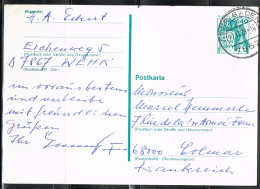 Absender:
H. A. Eckert
Eichenweg 5
(Straße und Hausnummer oder Postfach)
D 7867 WEHR
(Postleitzahl) (Ort)
im voraus bestens
und verbleibe
mit freundlichen
Grüßen
Ihr
BADEN
Postkarte
Monsieur
Marcel Hemmerle
7 Rue de la 1ère Armée
(Postfach oder Straße und Hausnummer)
F- 68000 Colmar
(Postleitzahl) (Bestimmungsort)
Frankreich